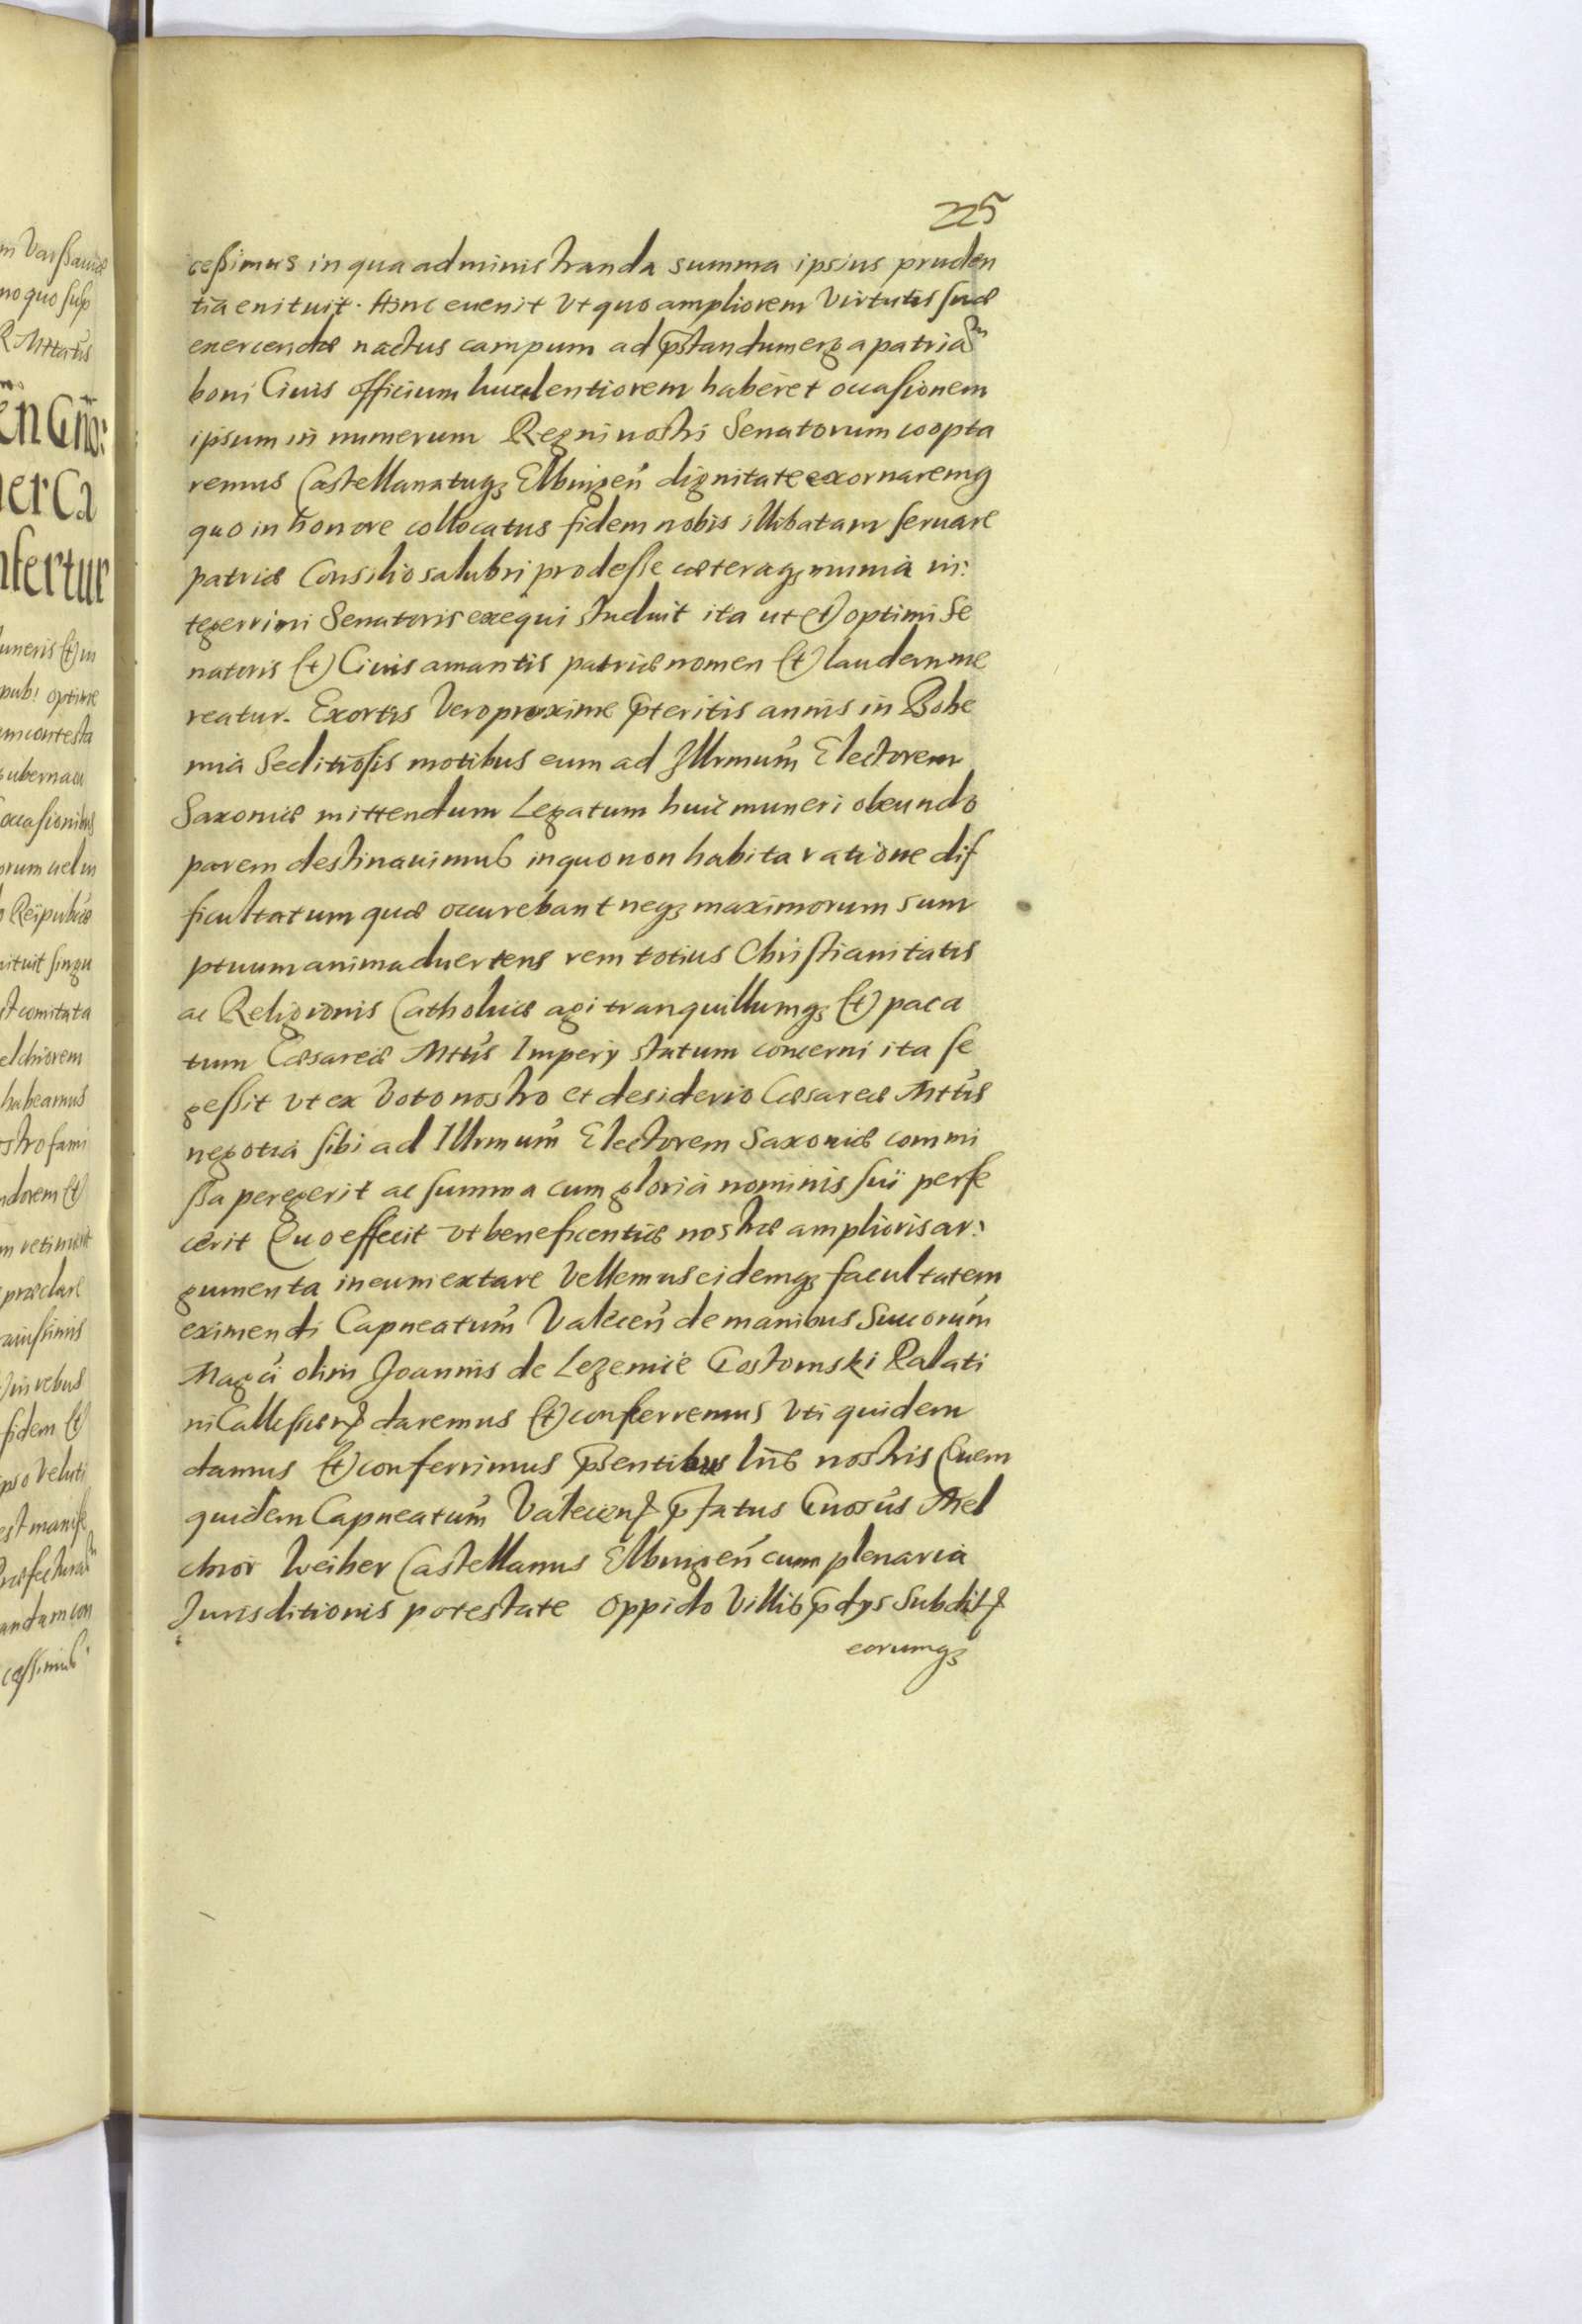 225
cessimus in qua administranda summa ipsius pruden
tia enituit. Hinc euenit Vt quo ampliorem Virtutis suæ
exercendæ nactus campum ad p̃standum erga patriam
boni Ciuis officium luculentiorem haberet occasionem
ipsum in numerum Regni nostri Senatorum coopta
remus Castellanatusq; Elbingeń dignitate exornaremq
quo in honore collocatus fidem nobis illibatam seruare
patriæ Consilio salubri prodesse cæteraq; munia in:
tegerrimi Senatoris exequi studuit ita ut (et) optimi Se
natoris (et) Ciuis amantis patriæ nomen (et) laudem me
reatur. Exortis Vero proxime p̃teritis annis in Bohe
mia Seditiosis motibus eum ad Illrmum Electorem
Saxoniæ mittendum Legatum huic muneri obeundo
parem destinauimus in quo non habita ratione dif
ficultatum quæ occurebant neq; maximorum sum
ptuum animaduertens rem totius Christianitatis
ac Religionis Catholicæ agi tranquillumq; (et) paca
tum Cæsareæ Mttis Impery statum concerni ita se
gessit vt ex Voto nostro et desiderio Cæsareæ Mttis
negotia sibi ad Illrmum Electorem Saxoniæ commi
ssa peregerit ac summa cum gloria nominis sui perfe
cerit Quo effecit vt beneficentiæ nostræ amplioris ar:
gumenta in eum extare Vellemus eidemq; facultatem
eximendi Capneatum Valecen de manibus Succorum
Magci olim Joannis de Lezenice Gostomski Palati
ni daremus (et) conferremus Vti quidem
damus (et) conferrimus p̃sentibus lr̃is nostris Quem
quidem Capneatum Valecen p̃fatus Gnosus Mel
chior Weiher Castellanus Elbingeń cum plenaria
Jurisditionis potestate oppido Villis p̃dys Subdit
eorumq;
m Varsauiæ
no quo susp
R Mttatis
en Gño:
er Ca
nfertur
uneris (et) in
pub: optime
m contesta
gubernacu
occasionibus
orum uel in
Reipublicæ
nituit singu
st comitata
elchiorem
habeamus
ostro fami
ndorem (et)
m retiment
præclare
in rebus
fidem (et)
pso Veluti
est manife
Præfecturam
andam con
cessimus